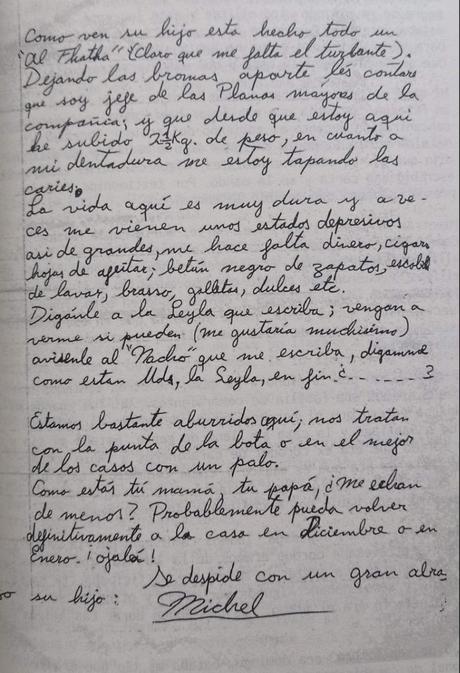 Como ven su hijo esta hecho todo un
"Al Fhatha" (Claro que me falta el turbante).
Dejando las bromas aparte les contare
que soy jefe de las Planas mayores de la
compañia; y que desde que estoy aqui
he subido 2½Kg. de peso, en cuanto a
mi dentadura me estoy tapando las
caries.
La vida aquí es muy dura y a ve-
ces me vienen unos estados depresivos
asi de grandes, me hace falta dinero, cigarr
hojas de afeitar; betún negro de zapatos, escobill
de lavar, brasso, galletas, dulces etc.
Digánle a la Leyla que escriba; vengan a
verme si pueden (me gustaría muchisimo)
avisenle al "Nacho" que me escriba, diganme
como estan Uds, la Leyla, en fin ¿........?
Estamos bastante aburridos aquí; nos tratan
con la punta de la bota o en el mejor
de los casos con un palo.
Como estás tú mamá, tu papá, ¿Me echan
de menos? Probablemente pueda volver
definitivamente a la casa en Diciembre o en
Enero. ¡ojalá!
Se despide con un gran abra
o su hijo:
Michel